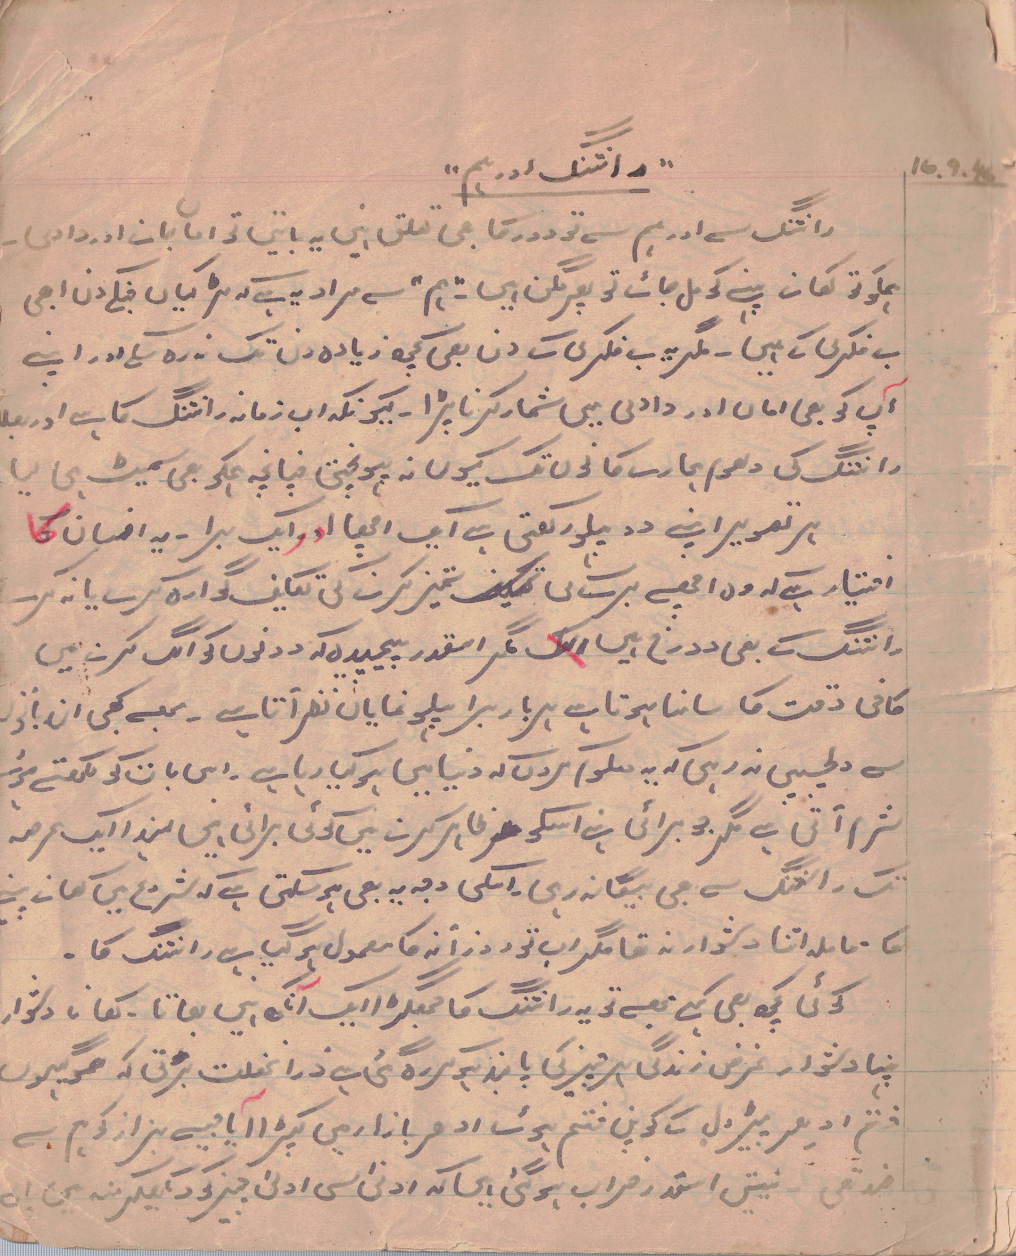 16.9.
"راشنگ اور ہم"
راشنگ سے اور ہم سے تو دور کا بھی تعلق نہیں یہ باتیں تو اماں جان اور دادی
ہمکو تو کھانے پینے کو مل جائے تو پھر مگن ہیں۔ "ہم" سے مراد یہ ہے کہ لڑکیاں جنکے دن ابھی
بے فکری کے ہیں۔ مگر یہ بے فکری کے دن بھی کچھ زیادہ دن تک نہ رہ سکے اور اپنے
آپ کو بھی اماں اور دادی میں شمار کرنا پڑا۔ کیونکہ اب زمانہ راشنگ کا ہے اور بھلا
راشنگ کی دھوم ہمارے کانوں تک کیوں نہ پہونچتی چنانچہ ہمکو بھی سمیٹ ہی لیا
ہر تصویر اپنے دو پہلو رکھتی ہے ایک اچھا اور ایک برا۔ یہ انسان کا
اختیار ہے کہ وہ اچھے برے کی تمیز کرنے کی تکلیف گوارہ کرے یا نہ کرے
راشنگ کے بھی دو رخ ہیں مگر اسقدر پیچیدہ کہ دونوں کو الگ کرنے میں
کافی دقت کا سامنا ہوتا ہے ہر بار برا پہلو نمایاں نظر آتا ہے۔ مجھے کبھی ان باتوں
سے دلچسپی نہ رہی کہ یہ معلوم کروں کہ دنیا میں ہو کیا رہا ہے۔ اس بات کو لکھتے ہوئے
شرم آتی ہے مگر جو برائی ہے اسکو ظاہر کرنے میں کوئی برائی نہیں لہذا ایک عرصہ
تک راشنگ سے بھی بیگانہ رہی۔ اسکی وجہ یہ بھی ہو سکتی ہے کہ شروع میں کھانے پینے
کا معاملہ اتنا دشوار نہ تھا مگر اب تو روزآنہ کا معمول ہو گیا ہے راشنگ کا۔
کوئی کچھ بھی کہے مجھے تو یہ راشنگ کا جھگڑا ایک آنکھ نہیں بھاتا۔ کھانا دشوار
پینا دشوار غرض زندگی ہر چیز کی پابند ہو کر رہ گئی ہے ذرا غفلت برتی کہ گیہوں
ختم ادھر پیٹرول کے کوپن ختم ہوئے ادھر بازار میں کپڑا آیا جیسے بزاز کو ہم سے
ضد تھی۔ نیتیں اسقدر خراب ہو گئی ہیں کہ ادنیٰ سی ادنیٰ چیز کو دیکھکر منہ میں